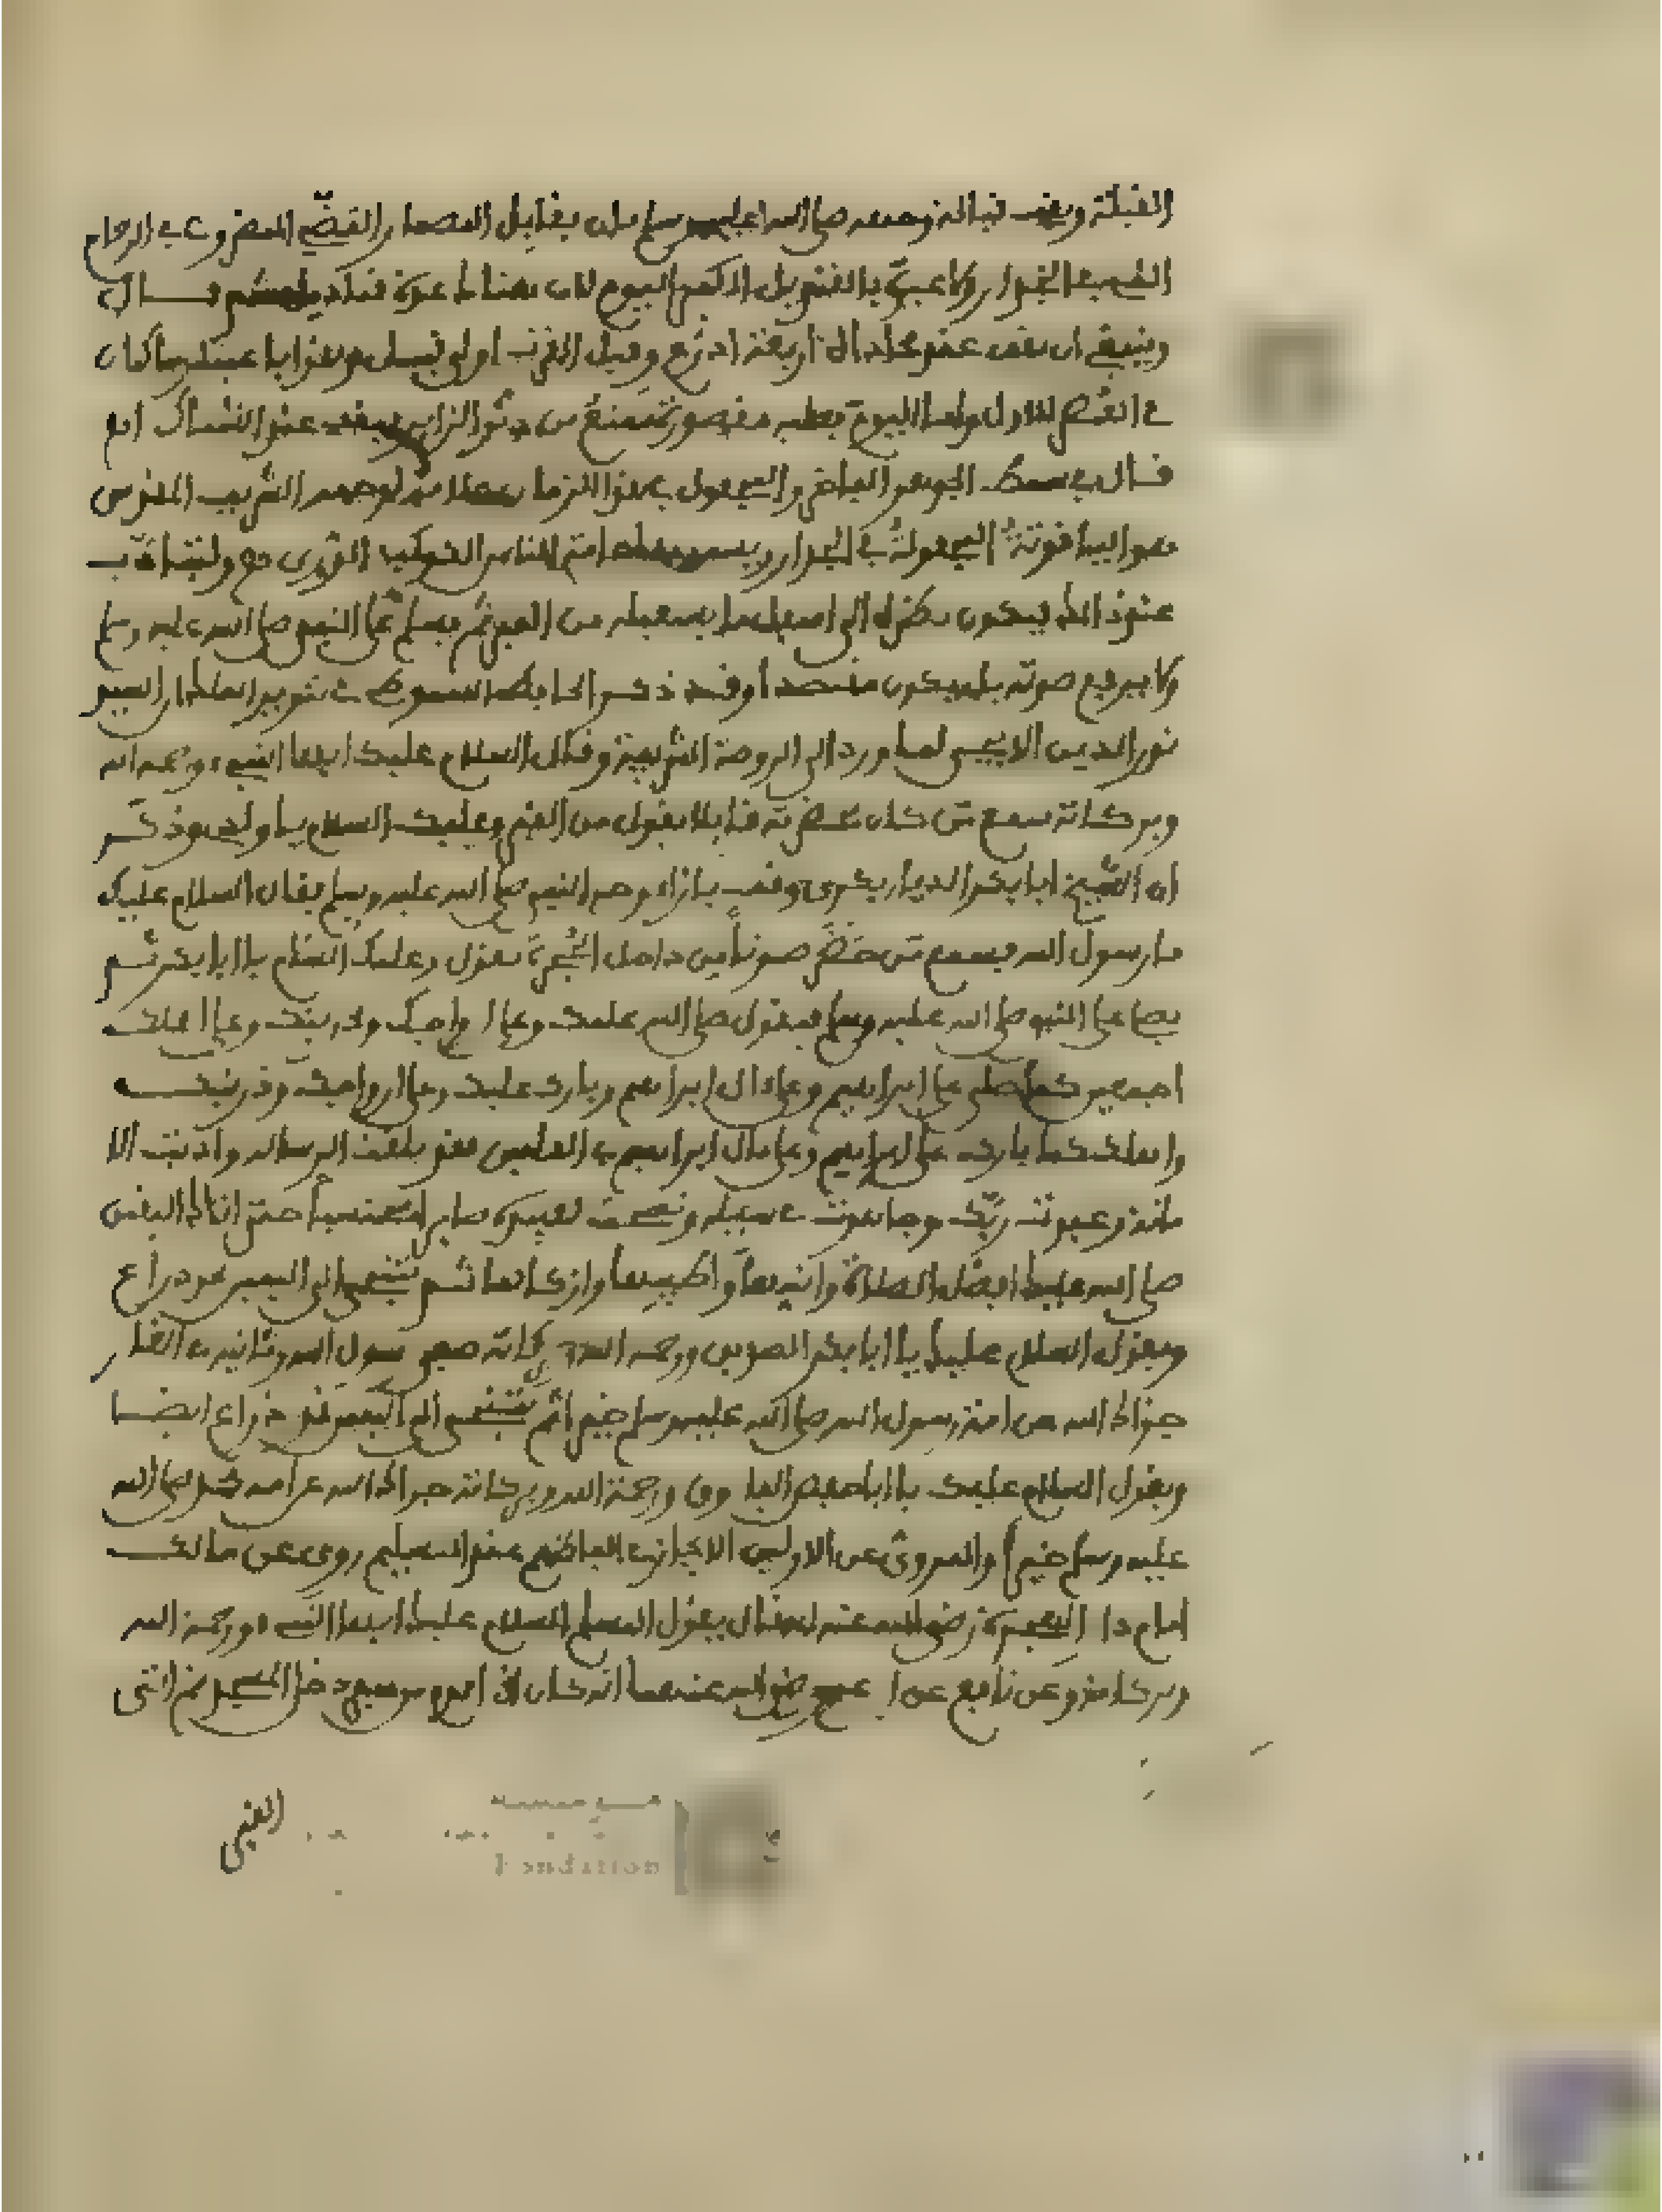 القبلة ويقف قبالة وجهه صلى الله عليه وسلم بان يقابل المسمار الفضي المضروب في الرخام
الذي في الجدار ولا عبرة بالقنديل الكبير اليوم لان هناك عدة قناديل قال
وينبغي ان يقف عند محاذاة اربعة اذرع وقيل القرب اولى وقيل هذا باعتبار ما كان
في العصر الاول واما اليوم فعليه مقصورة تمنع من دنو الزائر فيقف عند الشباك انتهى
قال في الجوهر الياقوت والمجعول في هذا الزمان علامة لوجهه الشريف المقدس
هو الياقوتة المجعولة في الجدار ويسميها عامة الناس الكوكب الدري وليتأدب
عند ذلك فيكون نظره الى اسفل ما يستقبله من القبر ثم يسلم على النبي صلى الله عليه وسلم
ولا يرفع صوته بل يكون مقتصدا وقد ذكر الحافظ السيوطي في تنوير السيد
نور الدين الايجي لما ورد الى الروضة الشريفة وقال السلام عليك ايها النبي ورحمة الله
وبركاته سمع من كان بحضرته قائلا يقول من القبر وعليك السلام يا ولدي وذكر
ان الشيخ ابا بكر الدياربكري وقف بازاء وجه النبي صلى الله عليه وسلم فقال السلام عليك
يا رسول الله فيسمع من حضر صوتا من داخل الحجرة يقول وعليك السلام يا ابا بكر ثم
يصلي على النبي صلى الله عليه وسلم فيقول صلى الله عليك وعلى ازواجك وذريتك وعلى اهلك
اجمعين كما صلى على ابراهيم وعلى ءال ابراهيم وبارك عليك وعلى ازواجك وذريتك
واهلك كما بارك على ابراهيم وعلى ءال ابراهيم في العلمين فقد بلغت الرسالة واديت الا
مانة وعبدت ربك وجاهدت في سبيله ونصحت لعبيده صابرا محتسبا حتى اتاك اليقين
صلى الله عليك افضل الصلاة واتمها واطيبها وازكاها ثم يتنحى الى اليمين قدر ذراع
ويقول السلام عليك يا ابا بكر الصديق ورحمة الله وبركاته صفي رسول الله وثانيه في الغار
جزاك الله عن امة رسول الله صلى الله عليه وسلم خيرا ثم يتنحى الى اليمين قدر ذراع ايضا
ويقول السلام عليك يا ابا حفص الفاروق ورحمة الله وبركاته جزاك الله عن امة محمد صلى الله
عليه وسلم خيرا والمروي عن الاولين الايجاز في الفاظهم عند التسليم روي عن مالك
امام دار الهجرة رضي الله عنه انه قال يقول المسلم السلام عليك ايها النبي ورحمة الله
وبركاته وعن نافع عن ابن عمر رضي الله عنهما انه كان اذا قدم من سفر دخل المسجد ثم اتى
القبر